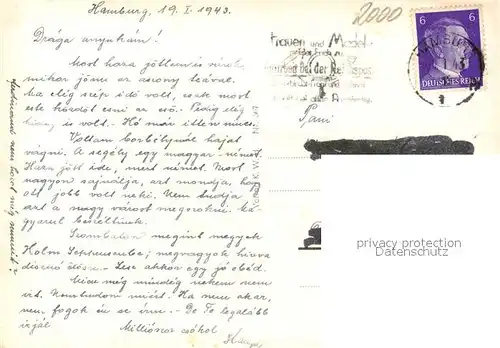 Hamburg, 19. I. 1943.
2000
Drága anyukám!
Most haza jöttem és várok,
mikor jön az asszony teával.
Ma elég szép idő volt, csak most
este kezdett esni az eső. Pedig elég
is volt. Hó már itten nincs.
Voltam borbélynál hajat
vágni. A segély egy magyar-német.
Hazajött ide, mert német. Most
nagyon sajnálja, azt mondja, hogy
ott jobb volt neki. Nem tudja
azt a nagy várost megszokni. Ma-
gyarul beszéltünk.
Szombaton megint megyek
Holm Seppensenbe; megvagyok híva
disznó ölésre. Lesz akkor egy jó ebéd.
még mindig nekem nem
írt. Nem tudom miért. Ha nem akar,
nem fogok én se írni. De Te legalább
írjál
Milliószor csókol
nem havas még
Frauen und Mädel
bei der Reichspost
6 6
DEUTSCHES REICH
Pani
Verlag K. W.
privacy protection
Datenschutz